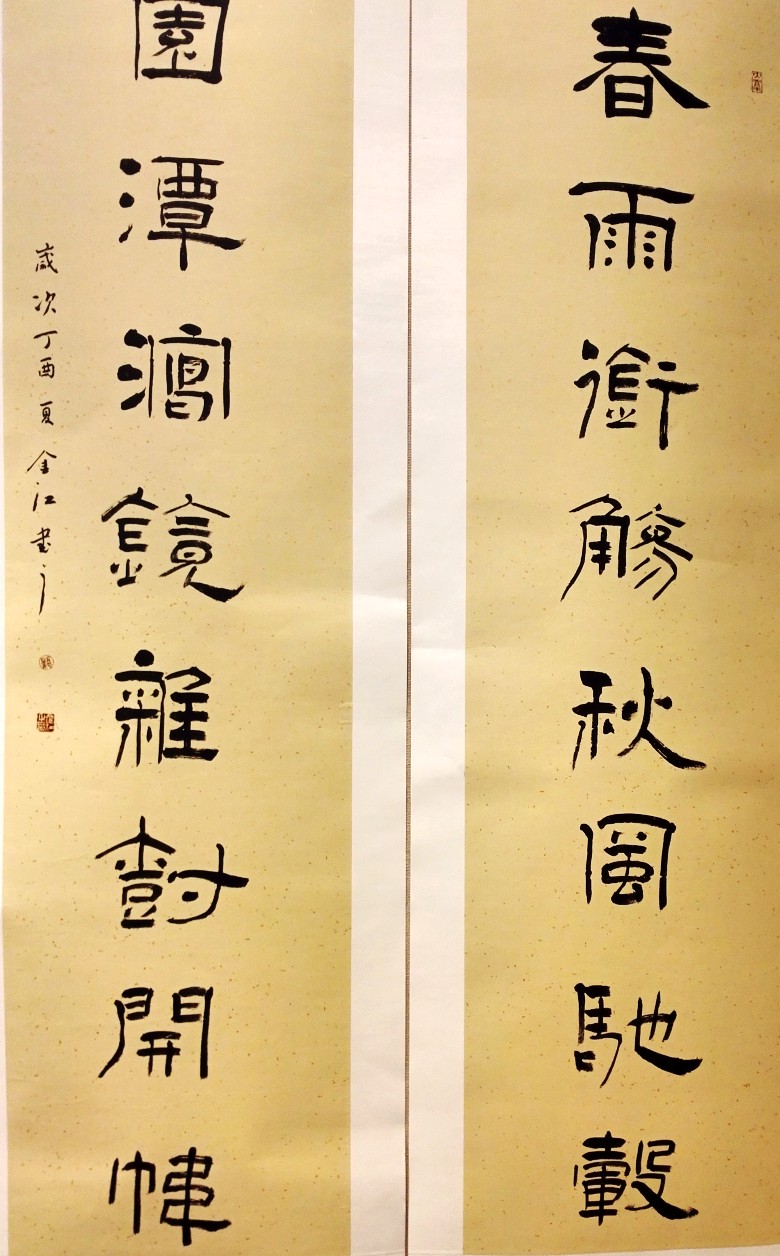 春雨銜觴秋風馳轂
園潭瀉鏡雜樹開幃
歲次丁酉夏金江書